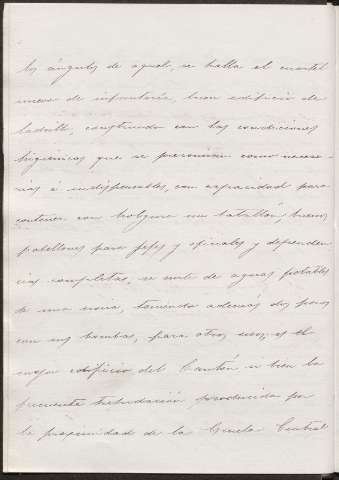 los ángulos de aquel, se halla el cuartel
nuevo de infantería, buen edificio de
ladrillo, construido con las condiciones
higienicas que se preconizan como necesa-
rias é indispensables, con capacidad para
contener con holgura un batallón, buenos
pabellones para jefes y oficiales y dependen-
cias completas, se surte de aguas potables
de una noria, teniendo además dos pozos
con sus bombas, para otros usos, es el
mejor edificio del Cantón si bien la
frecuente trepidación producida por
la proximidad de la Escuela Central